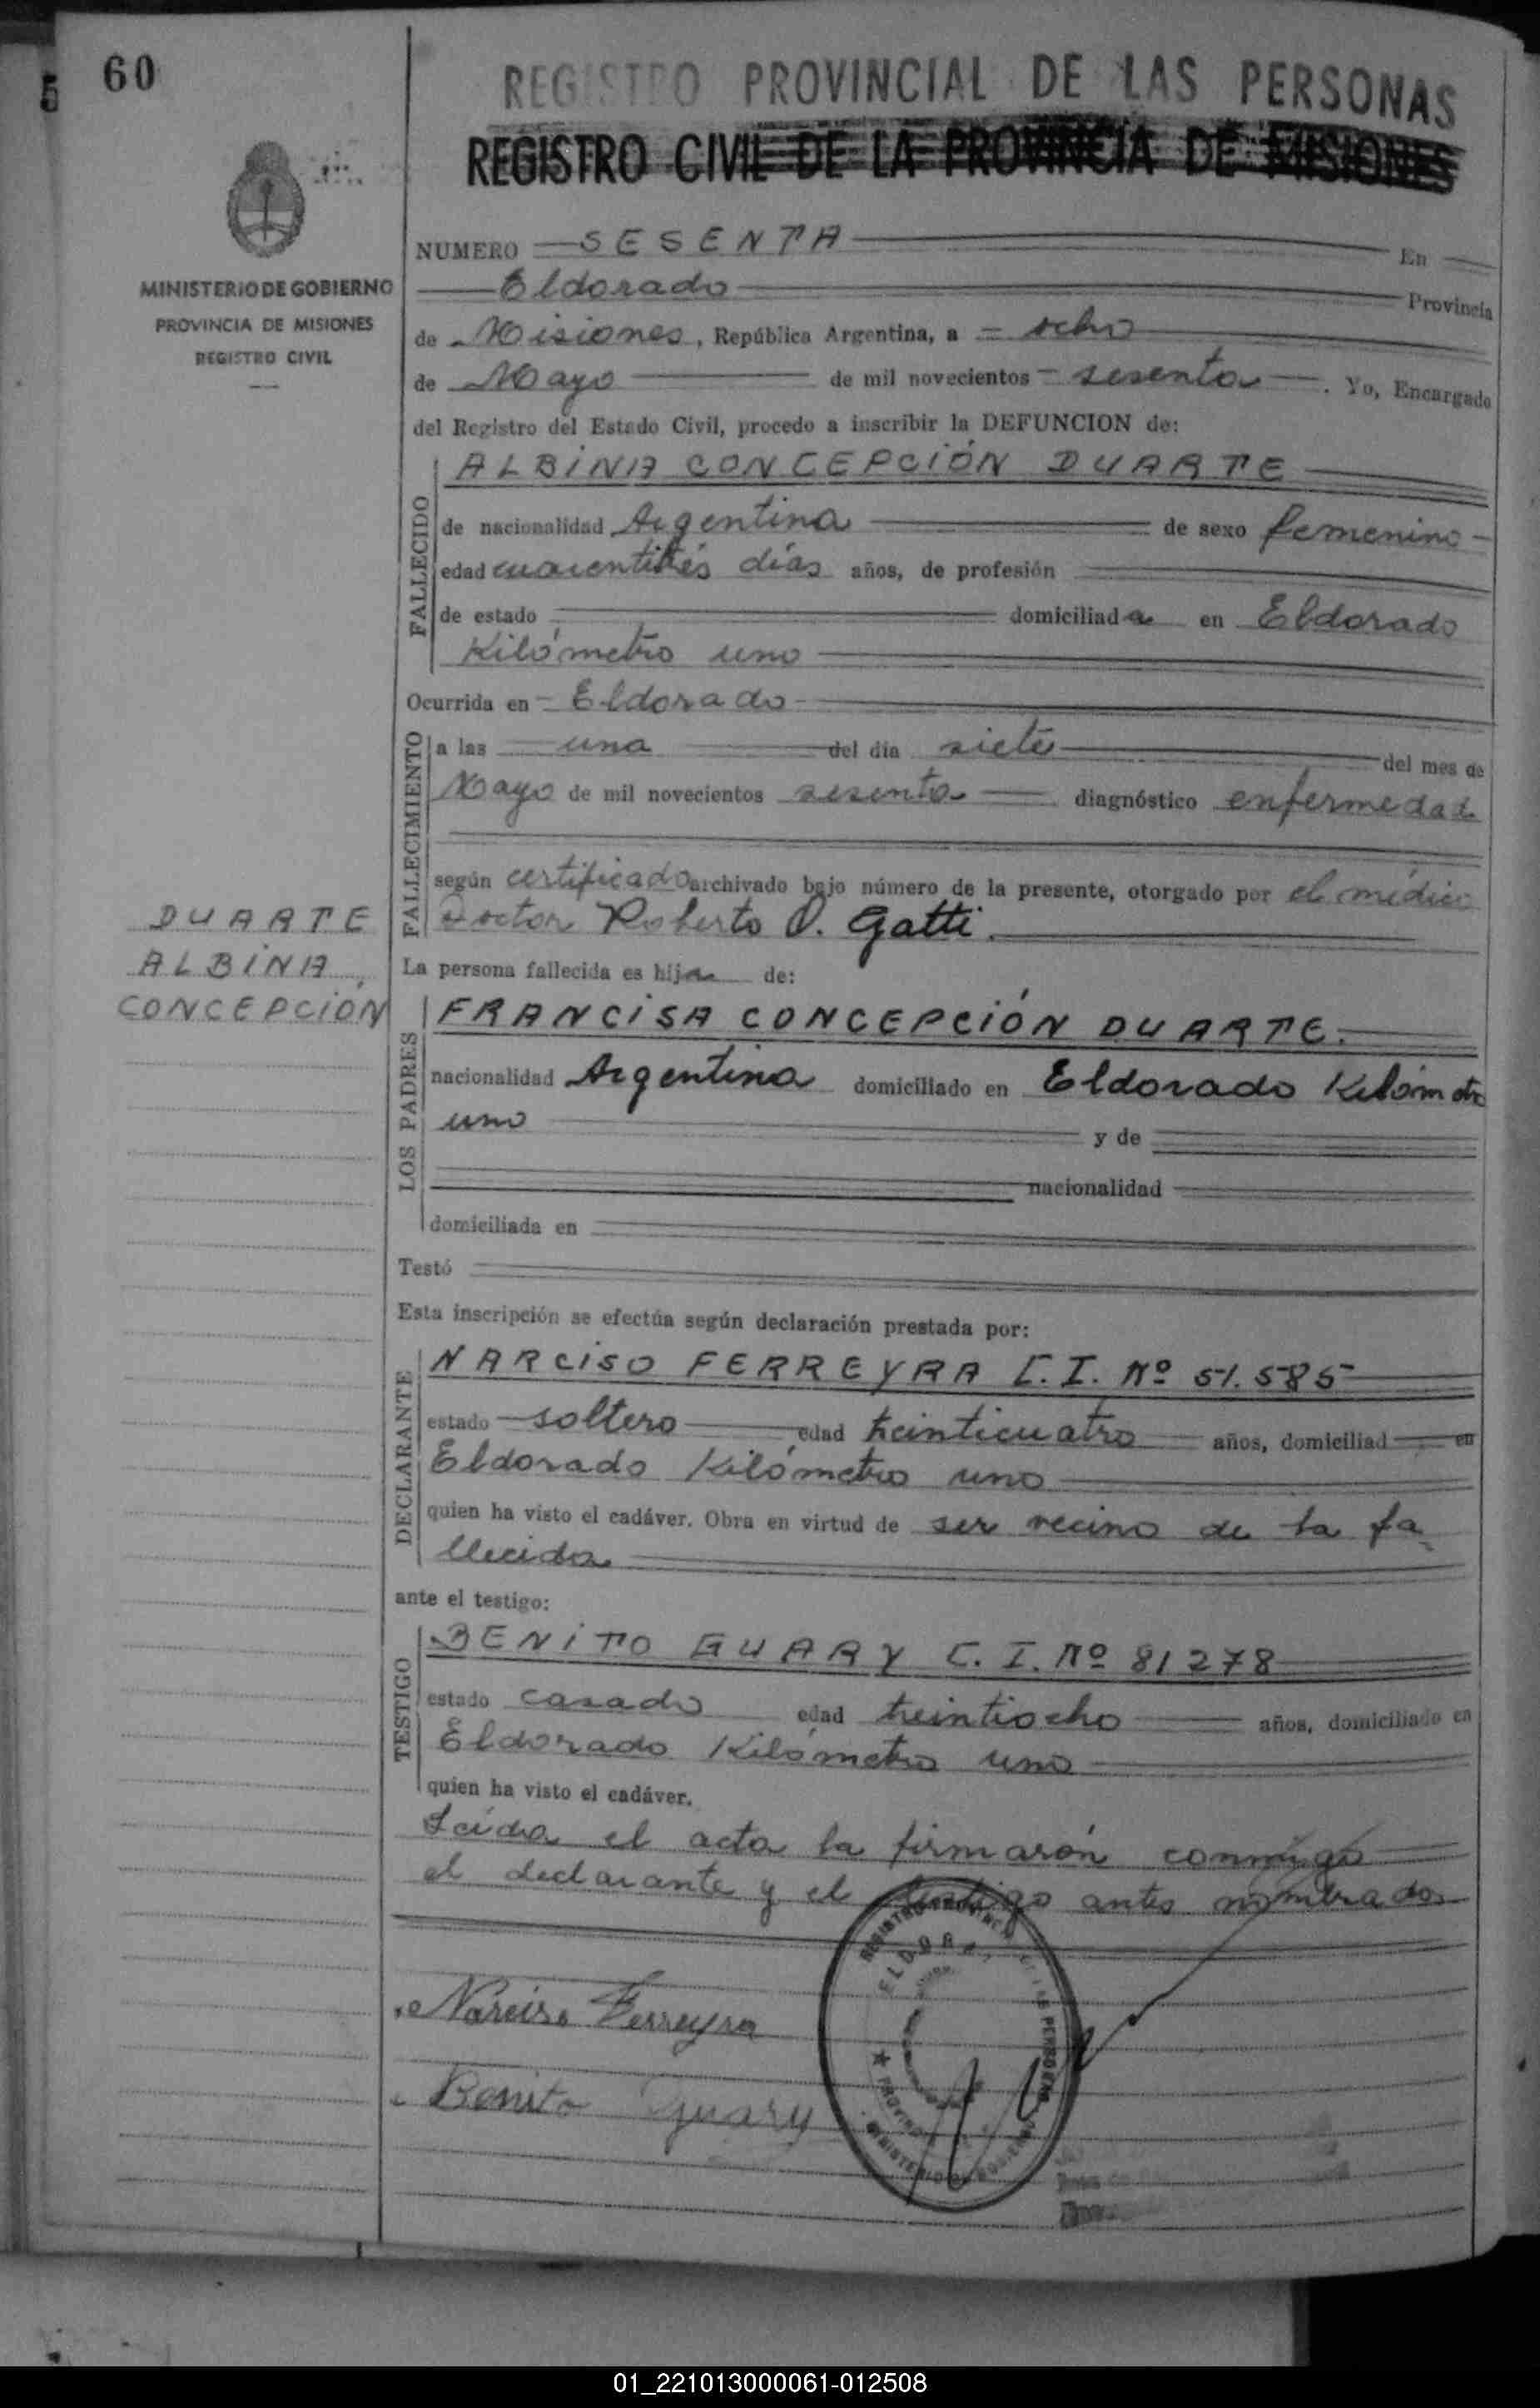 60
5
REGISTRO PROVINCIAL DE LAS PERSONAS
REGISTRO CIVIL DE LA PROVINCIA DE MISIONES
MINISTERIO DE GOBIERNO
PROVINCIA DE MISIONES
REGISTRO CIVIL
NUMERO SESENTA En
Eldorado Provincia
de Misiones, República Argentina, a ocho
de Mayo de mil novecientos sesenta. Yo, Encargado
del Registro del Estado Civil, procedo a inscribir la DEFUNCION de:
FALLECIDO
ALBINA CONCEPCIÓN DUARTE
de nacionalidad Argentina de sexo femenino
edad cuarentitrés días años, de profesión
de estado domiciliada en Eldorado
Kilómetro uno
Ocurrida en Eldorado
FALLECIMIENTO
a las una del día siete del mes de
Mayo de mil novecientos sesenta diagnóstico enfermedad
según certificado archivado bajo número de la presente, otorgado por el médico
Doctor Roberto O. Gatti.
DUARTE
ALBINA
CONCEPCIÓN
La persona fallecida es hija de:
LOS PADRES
FRANCISA CONCEPCIÓN DUARTE.
nacionalidad Argentina domiciliado en Eldorado Kilómetro
uno y de
nacionalidad
domiciliada en
Testó
Esta inscripción se efectúa según declaración prestada por:
DECLARANTE
NARCISO FERREYRA C.I. Nº 51.585
estado soltero edad treinticuatro años, domiciliad en
Eldorado Kilómetro uno
quien ha visto el cadáver. Obra en virtud de ser vecino de la fa-
llecida
ante el testigo:
TESTIGO
BENITO GUARY C.I. Nº 81278
estado casado edad treintiocho años, domiciliado en
Eldorado Kilómetro uno
quien ha visto el cadáver.
Leída el acta la firmarón conmigo
el declarante y el testigo antes nombrados
Narciso Ferreyra
Benito Guary
01_221013000061-012508